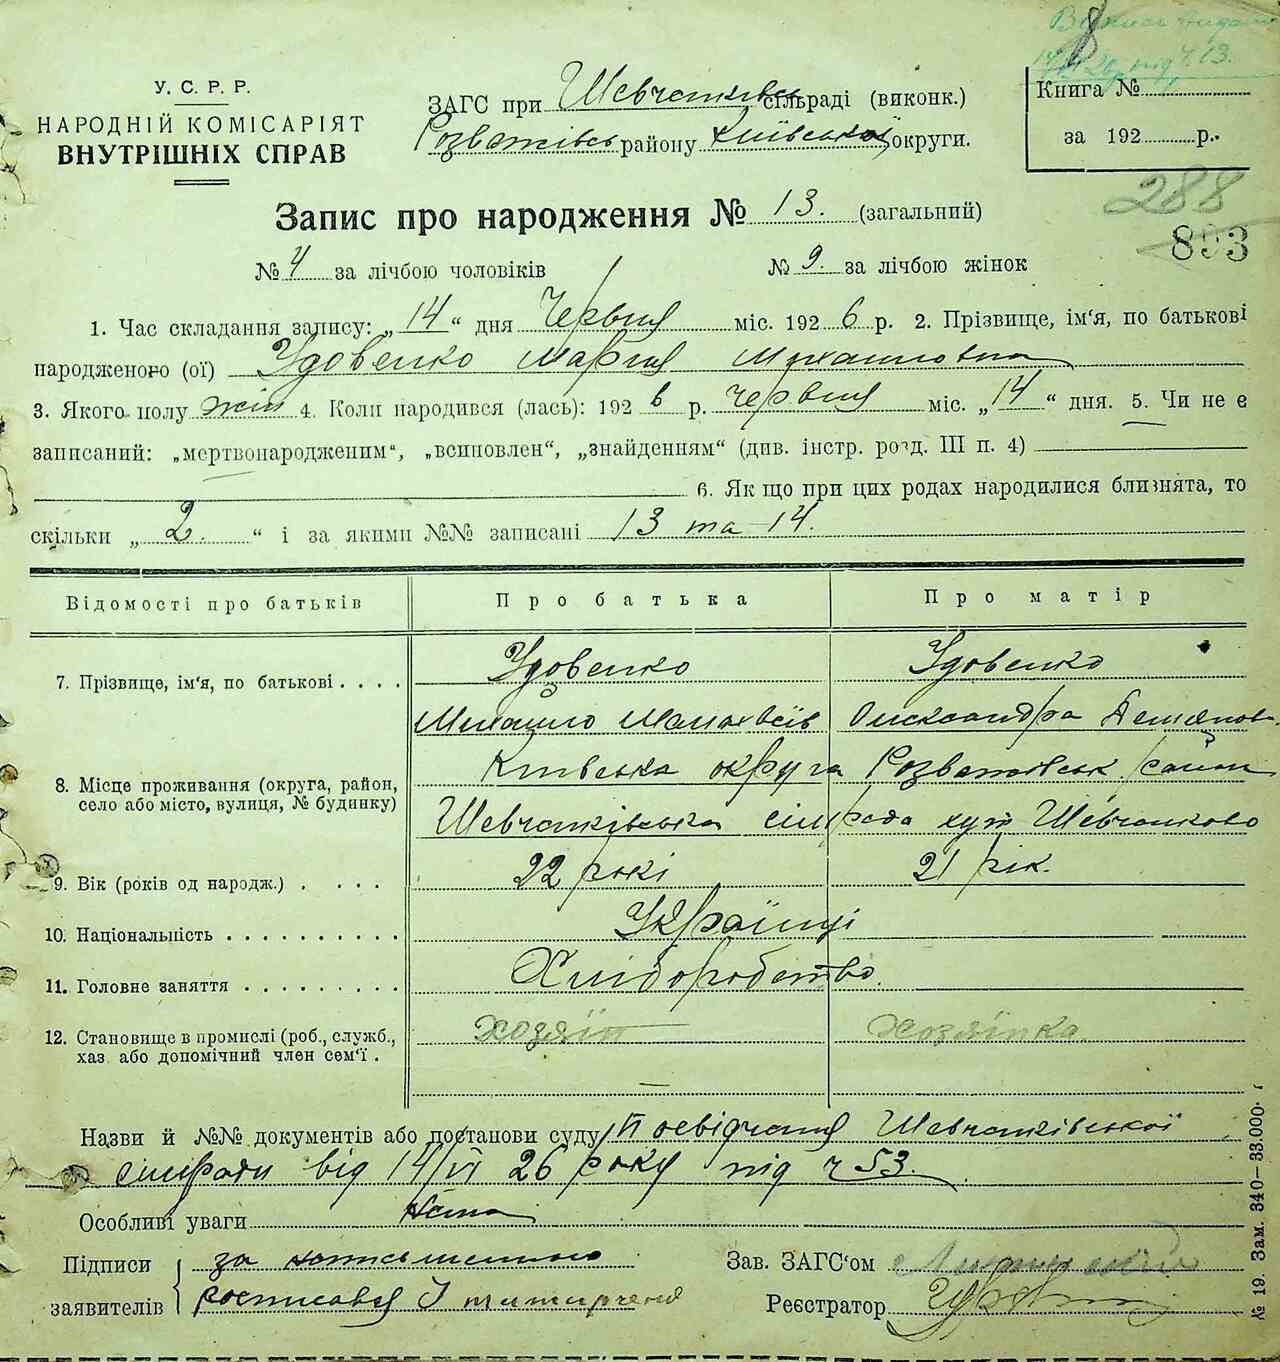 8
У. С. Р. Р.
НАРОДНІЙ КОМІСАРІЯТ
ВНУТРІШНІХ СПРАВ
ЗАГС при Шевченківсь сільраді (виконк.)
Розважівсь району Київської округи.
Книга №
за 192 р.
288
893
Запис про народження № 13. (загальний)
№ 4 за лічбою чоловіків № 9. за лічбою жінок
1. Час складання запису: „ 14 “ дня Червня міс. 192 6 р. 2. Прізвище, ім'я, по батькові
народженого (ої) Удовенко Марія Михайловна
3. Якого полу жін 4. Коли народився (лась): 192 6 р. Червня міс. „ 14 “ дня. 5. Чи не є
записаний: „мертвонародженим“, „всиновлен“, „знайденням“ (див. інстр. розд. III п. 4)
6. Як що при цих родах народилися близнята, то
скільки „ 2. “ і за якими №№ записані 13 та 14.
Відомості про батьків Про батька Про матір
7. Прізвище, ім'я, по батькові . . . . Удовенко Удовенко
Михайло Олександра
8. Місце проживання (округа, район, село або місто, вулиця, № будинку) Київська округа Розважівськ район
Шевченківська сільрада хут Шевченково
9. Вік (років од народж.) . . . . 22 рокі 21 рік.
10. Національність . . . . . . . . . . Українці
11. Головне заняття . . . . . . . . . Хліборобство.
12. Становище в промислі (роб., служб., хаз. або допомічний член сем'ї . Хозяїн Хозяїнка.
Назви й №№ документів або постанови суду Посвідчення Шевченківської
сільради від 14/VI 26 року під ч 53.
Особливі уваги Нема
Підписи за
заявителів росписався
Зав. ЗАГС'ом
Реєстратор
№ 19. Зам. 340—33.000.